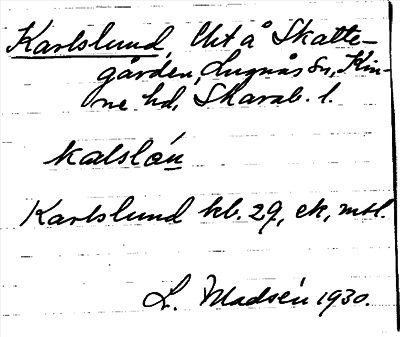 Karlslund, Uht å Skatte-
gården, Lugnås sn, Kin-
ne hd, Skarab. l.
kalslón
Karlslund kb. 29, ek, mtl.
L. Madsén 1930.